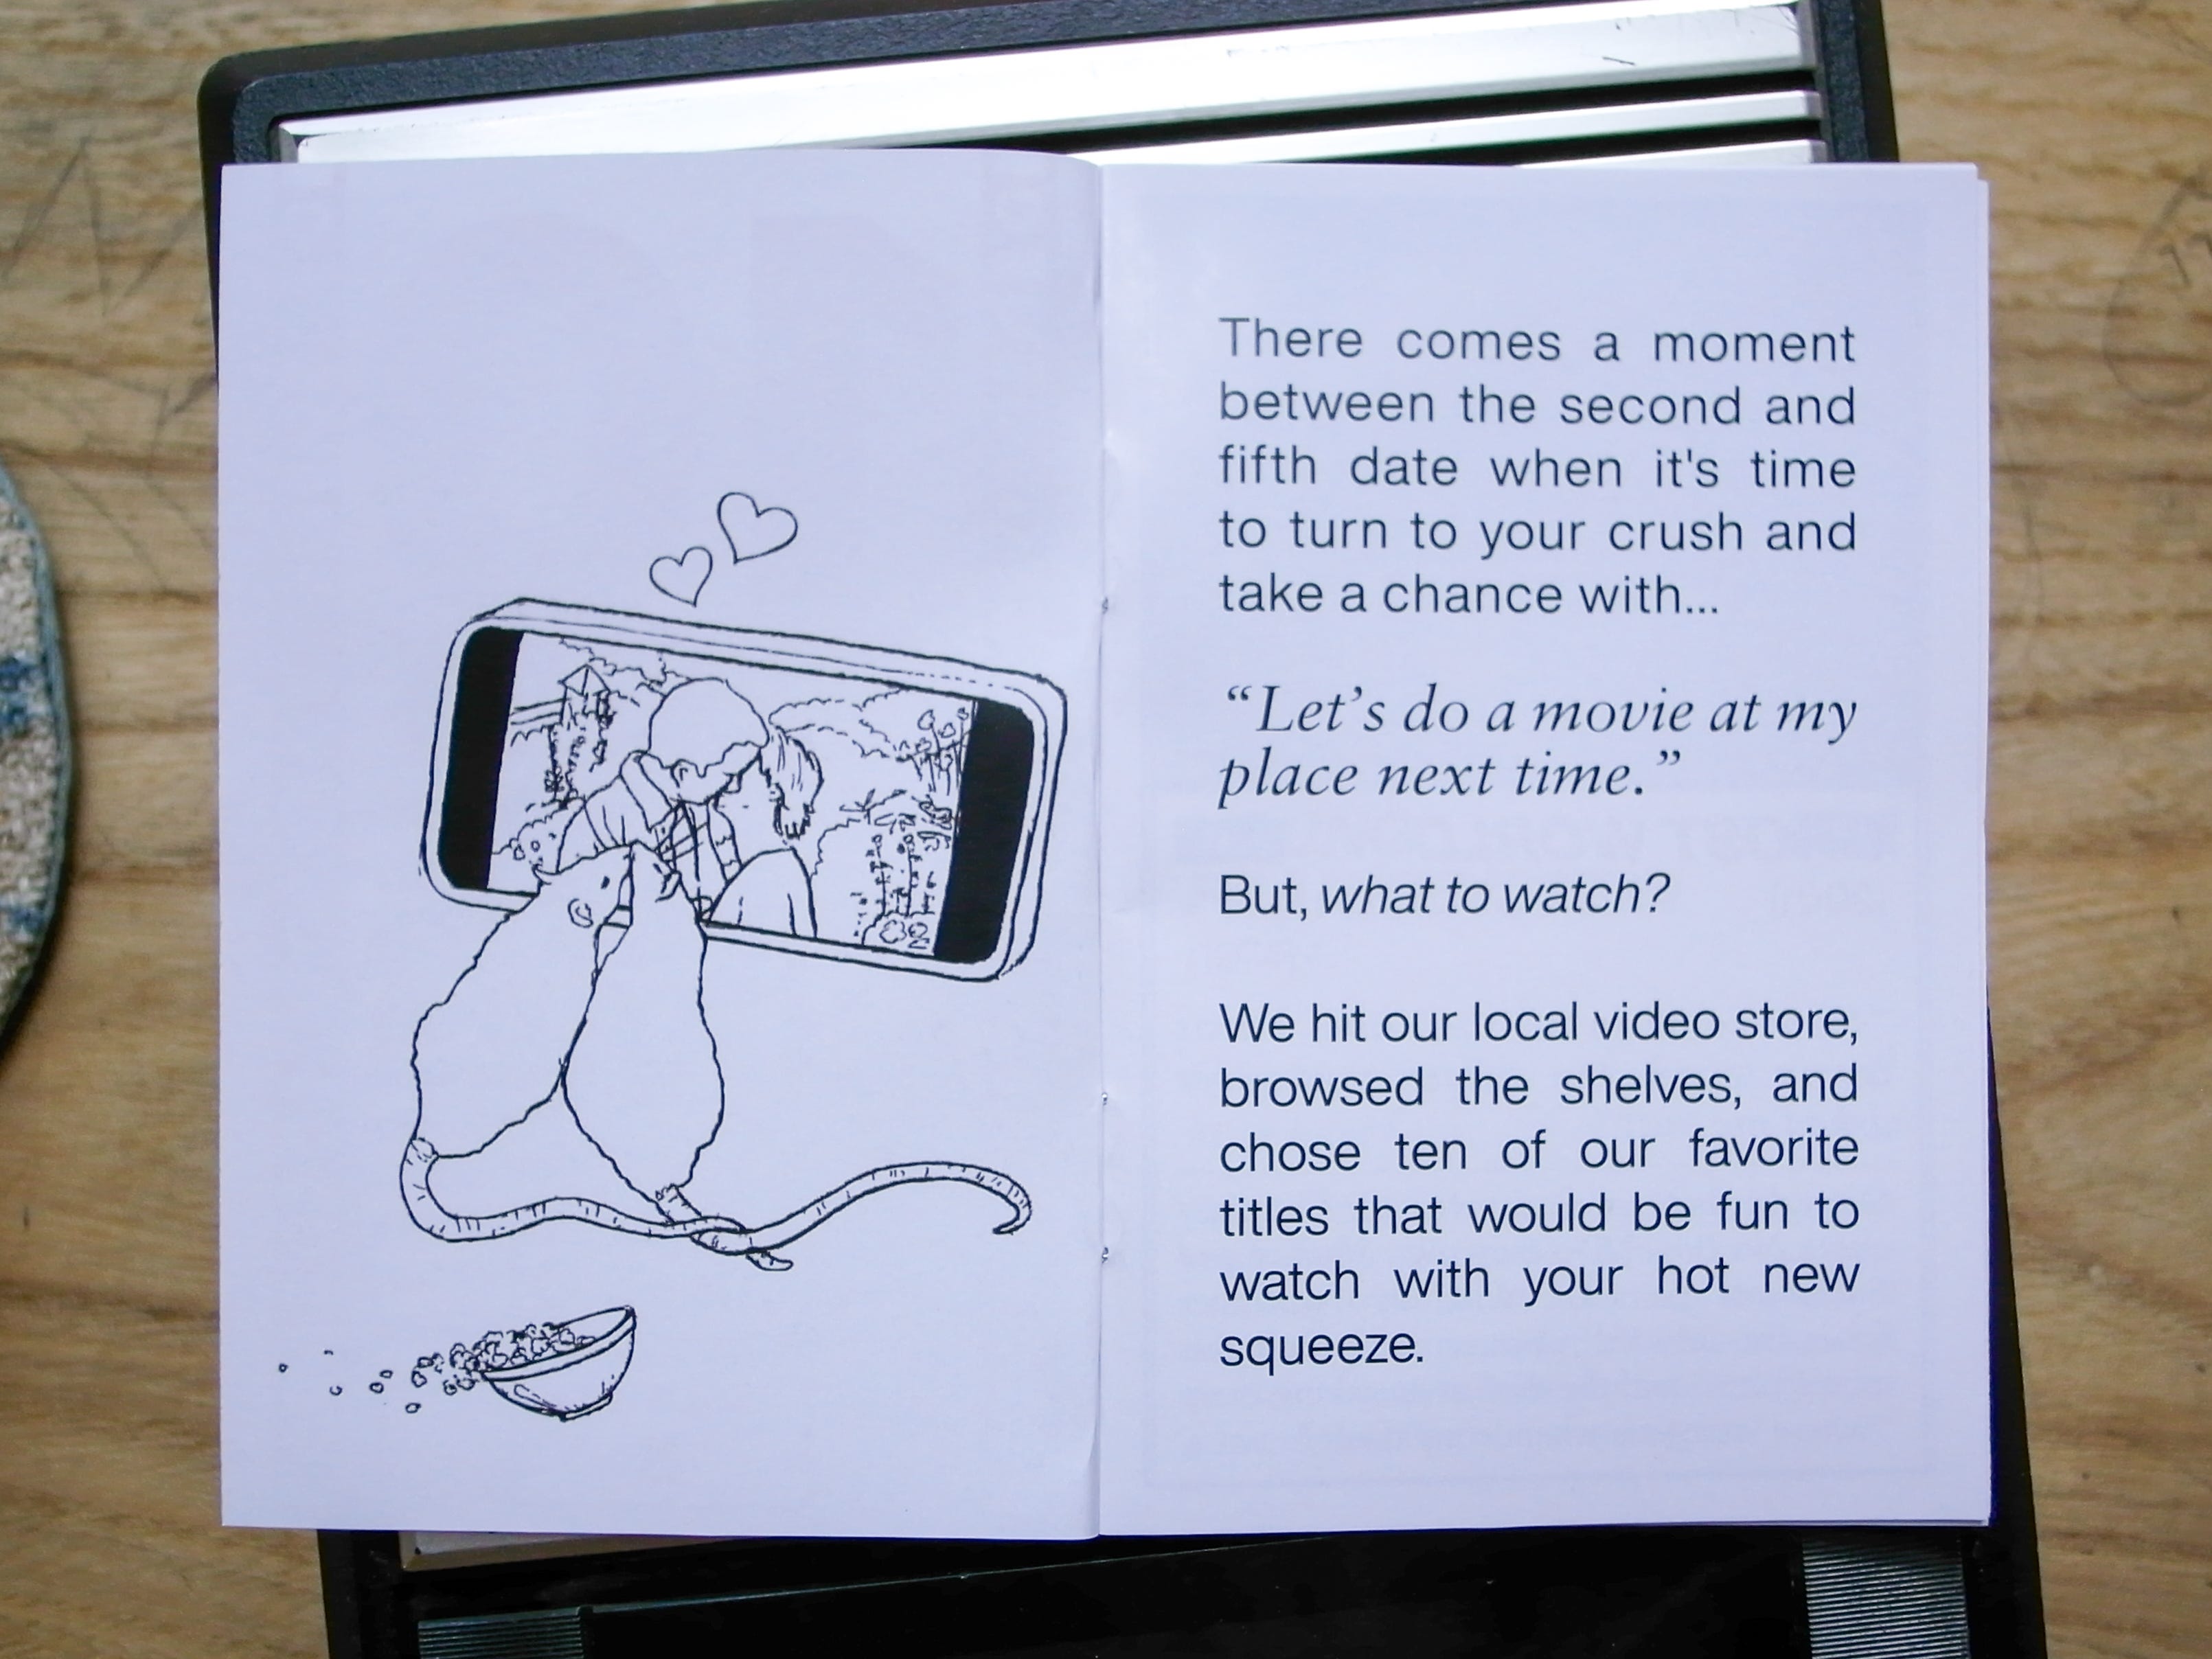 There comes a moment
between the second and
fifth date when it's time
to turn to your crush and
take a chance with...
“Let’s do a movie at my
place next time.”
But, what to watch?
We hit our local video store,
browsed the shelves, and
chose ten of our favorite
titles that would be fun to
watch with your hot new
squeeze.